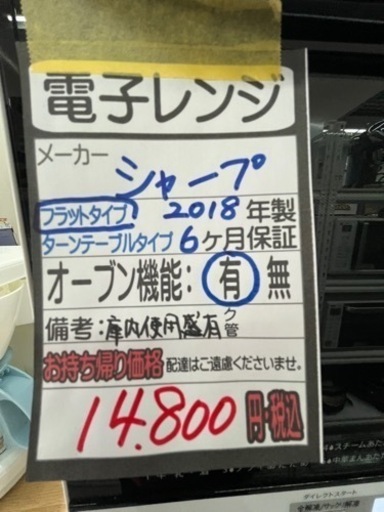 電子レンジ
メーカー
シャープ
フラットタイプ 2018年製
ターンテーブルタイプ 6ヶ月保証
オーブン機能：有 無
備考：庫内使用感有 ク管
お持ち帰り価格 配達はご遠慮くださいませ。
14.800円・税込
ダイレクトスタート